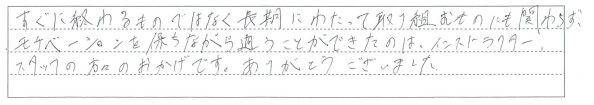 すぐに終わるものではなく長期にわたって取り組むものにも関わらず、
モチベーションを保ちながら通うことができたのは、インストラクター、
スタッフの方々のおかげです。ありがとうございました。